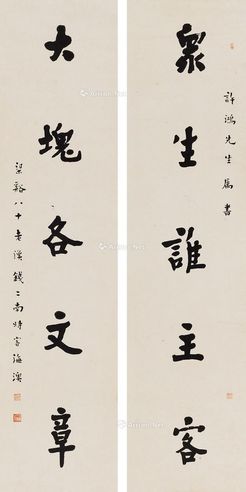 許鴻先生屬書
眾生誰主客
大塊各文章
梁谿八十老漢錢二南時客海濱